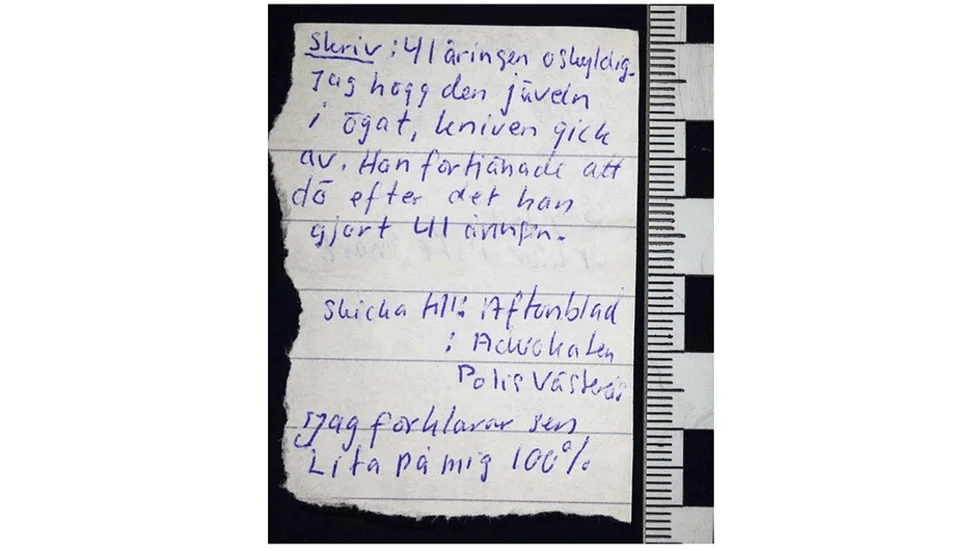 Skriv: 41 åringen oskyldig.
Jag högg den jäveln
i ögat, kniven gick
av. Han förtjänade att
dö efter det han
gjort 41 åringen.
Skicka till: Aftonblad
: Advokaten
Polis Västerås
Jag förklarar sen
Lita på mig 100%